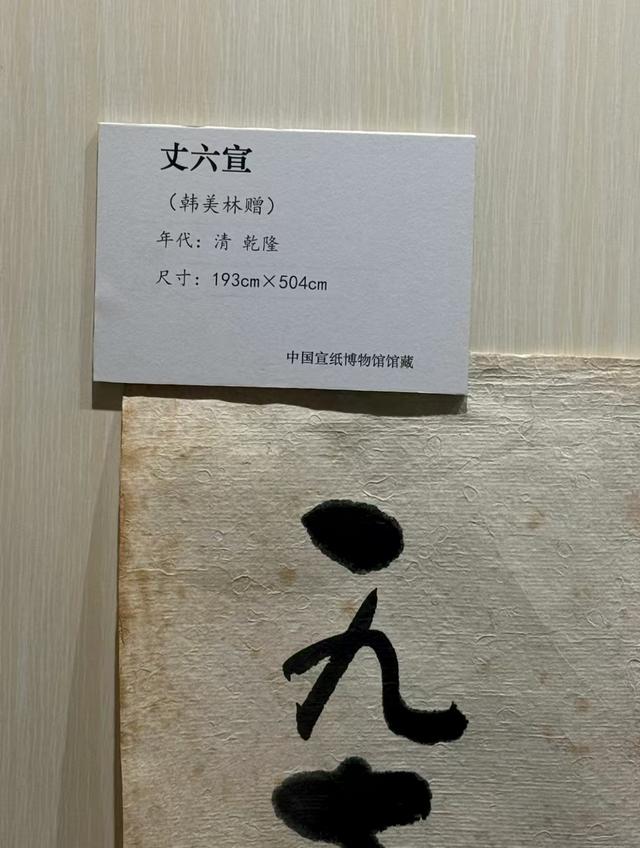 丈六宣
（韩美林赠）
年代：清 乾隆
尺寸：193cm×504cm
中国宣纸博物馆馆藏